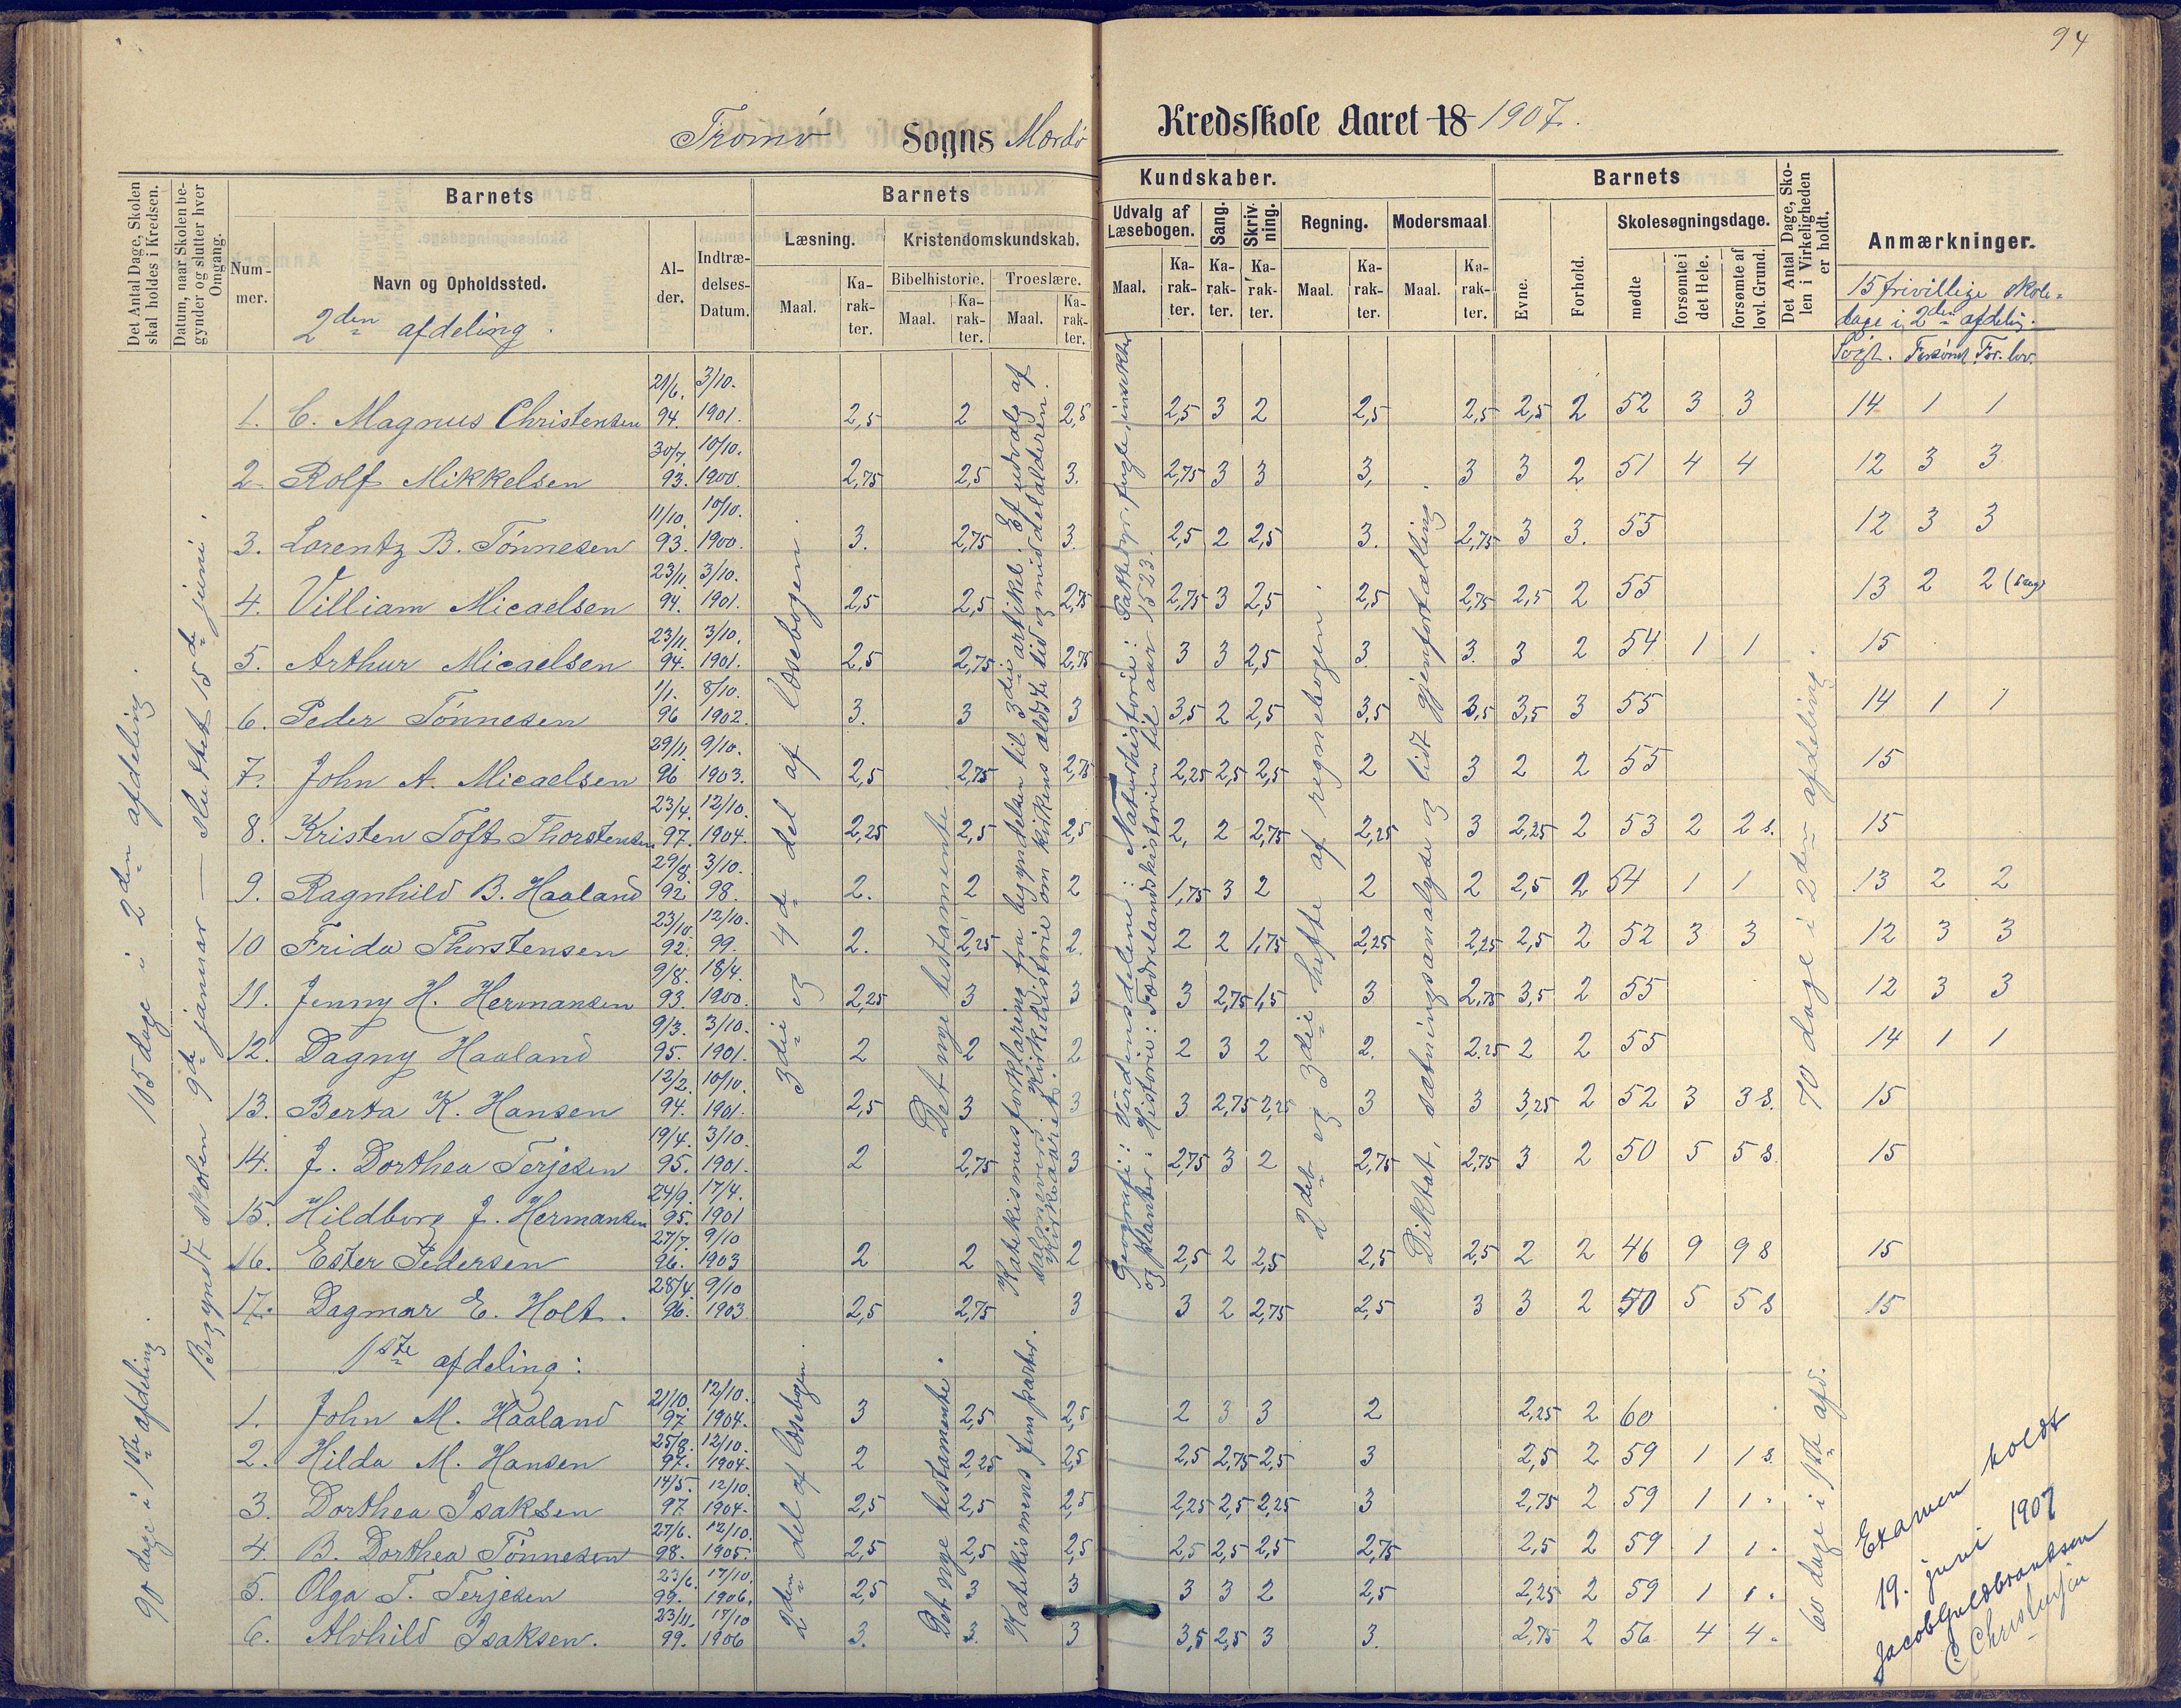 94
Tromø Sogns Mærdø Kredsskole Aaret 18 1907.
Det Antal Dage, Skolen skal holdes i Kredsen.
Datum, naar Skolen begynder og slutter hver Omgang.
Barnets
Num-mer.
Navn og Opholdssted.
Al-der.
Indtræ-delses-Datum.
Barnets Kundskaber.
Læsning.
Maal.
Ka-rak-ter.
Kristendomskundskab.
Bibelhistorie.
Maal.
Ka-rak-ter.
Troeslære.
Maal.
Ka-rak-ter.
Udvalg af Læsebogen.
Maal.
Ka-rak-ter.
Sang.
Ka-rak-ter.
Skriv-ning.
Ka-rak-ter.
Regning.
Maal.
Ka-rak-ter.
Modersmaal.
Maal.
Ka-rak-ter.
Barnets
Evne.
Forhold.
Skolesøgningsdage.
mødte
forsømte i det Hele.
forsømte af lovl. Grund.
Det Antal Dage, Sko-len i Virkeligheden er holdt.
Anmærkninger.
15 frivillige skole-
dage i 2den afdelin.
Søgt. Forsømt For. lov.
105 dage i 2den afdeling.
90 dage i 1ste afdeling.
Begyndt skolen 9de januar — sluttet 15de juni.
3die og 4de del af læsebogen.
Det nye testamente.
Katekismus forklaring fra begyndelsen til 3die artikel. Et udvalg af
salmevers. Kirkehistorie om kirkens ældste tid og middelalderen.
Kirkeaaret.
Geografi: Verdensdelene: Naturhistorie: Pattedyr, fugle, insekter
og planter. Historie: Fædrelandshistorien til aar 1523.
2det og 3die hefte af regnebogen.
Diktat, sætningsanalyse og lidt gjenfortælling.
70 dage i 2den afdeling.
2den afdeling.
1. C. Magnus Christensen 21/6. 94. 3/10. 1901. 2,5 2 2,5 2,5 3 2 2,5 2,5 2,5 2 52 3 3 14 1 1
2. Rolf Mikkelsen 30/7. 93. 10/10. 1900. 2,75 2,5 3. 2,75 3 3 3, 3 3 2 51 4 4 12 3 3
3. Lorentz B. Tönnesen 11/10. 93. 10/10. 1900. 3. 2,75 3. 2,5 2 2,5 3. 2,75 3 3. 55 12 3 3
4. Villiam Micaelsen 23/11 94. 3/10. 1901. 2,5 2,5 2,75 2,75 3 2,5 2,5 2,75 2,5 2 55 13 2 2
5. Arthur Micaelsen 23/11. 94. 3/10. 1901. 2,5 2,75 2,75 3 3 2,5 3 3. 3 2 54 1 1 15
6. Peder Tönnesen 1/1. 96 8/10. 1902. 3. 3 3 3,5 2 2,5 3,5 3,5 3,5 3 55 14 1 1
7. John A. Micaelsen 29/11. 96 9/10. 1903. 2,5 2,75 2,75 2,25 2,5 2,5 2 3 2 2 55 15
8. Kristen Toft Thorstensen 23/4. 97. 12/10. 1904. 2,25 2,5 2,5 2, 2 2,75 2,25 3 2,25 2 53 2 2 s. 15
9. Ragnhild B. Haaland 29/8. 92 3/10. 98. 2. 2 2 1,75 3 2 2 2 2,5 2 54 1 1 13 2 2
10 Frida Thorstensen 23/10. 92. 12/10. 99. 2. 2,25 2. 2 2 1,75 2,25 2,25 2,5 2 52 3 3 12 3 3
11. Jenny H. Hermansen 9/8. 93. 18/4. 1900. 2,25 3 3 3 2,75 1,5 3 2,75 3,5 2 55 12 3 3
12. Dagny Haaland 9/3. 95. 3/10. 1901. 2 2 2 2 3 2 2. 2.25 2 2 55 14 1 1
13. Berta K. Hansen 12/2. 94. 10/10. 1901. 2,5 3 3 3 2,75 2,25 3 3 3,25 2 52 3 3 s. 15
14. J. Dorthea Terjesen 19/4. 95. 3/10. 1901. 2 2,75 3 2,75 3 2 2,75 2,75 3 2 50 5 5 s. 15
15. Hildborg J. Hermansen 24/9. 95. 17/4. 1901
16. Ester Pedersen 27/7. 96. 9/10 1903 2 2 2 2,5 2 2,5 2,5 2,5 2 2 46 9 9 s 15
17. Dagmar E. Holt. 28/4. 96. 9/10 1903 2,5 2,75 3 3 2 2,75 2,5 3 3 2 50 5 5 s 15
1ste afdeling:
2den del af læsebogen.
Det nye testamente.
Katekismens fem parter.
60 dage i 1ste afd.
1. John M. Haaland 21/10. 97. 12/10. 1904. 3 2,5 2,5 2 3 3 2 2,25 2 60
2. Hilda M. Hansen 25/8. 97. 12/10. 1904. 2 2,25 2,5 2,5 2,75 2,5 3 2,5 2 59 1 1 s.
3. Dorthea Isaksen 14/5. 97 12/10. 1904. 2,5 2,5 2,5 2,25 2,5 2,25 3 2,75 2 59 1 1 "
4. B. Dorthea Tönnesen 27/6. 98. 12/10. 1905. 2,5 2,5 2,5 2,5 2,5 2,5 2,75 2,5 2 59 1 1 "
5. Olga T. Terjesen 23/6. 99. 17/10. 1906. 2,5 3 3 3 3 2 2,5 2,25 2 59 1 1 "
6. Alvhild Isaksen. 23/11. 99. 17/10 1906 3. 3. 3 3,5 2,5 3 3. 2,75 2 56 4 4 "
Examen holdt
19. juni 1907
Jacob Guldbrandsen
C. Christensen